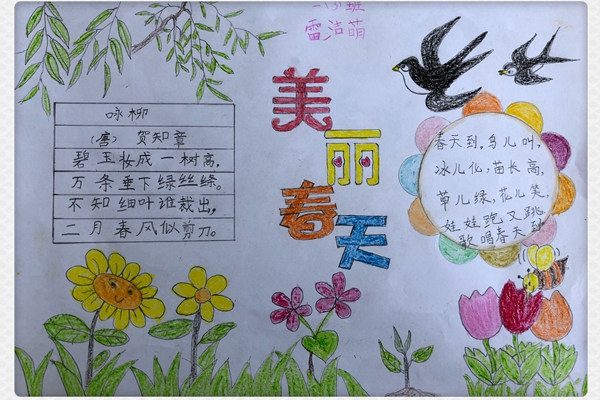 雷洁萌
美
丽
春
天
咏柳
（唐） 贺知章
碧玉妆成一树高，
万条垂下绿丝绦。
不知细叶谁裁出，
二月春风似剪刀。
春天到，鸟儿叫，
冰儿化，苗长高，
草儿绿，花儿笑，
娃娃跑又跳
歌唱春天到